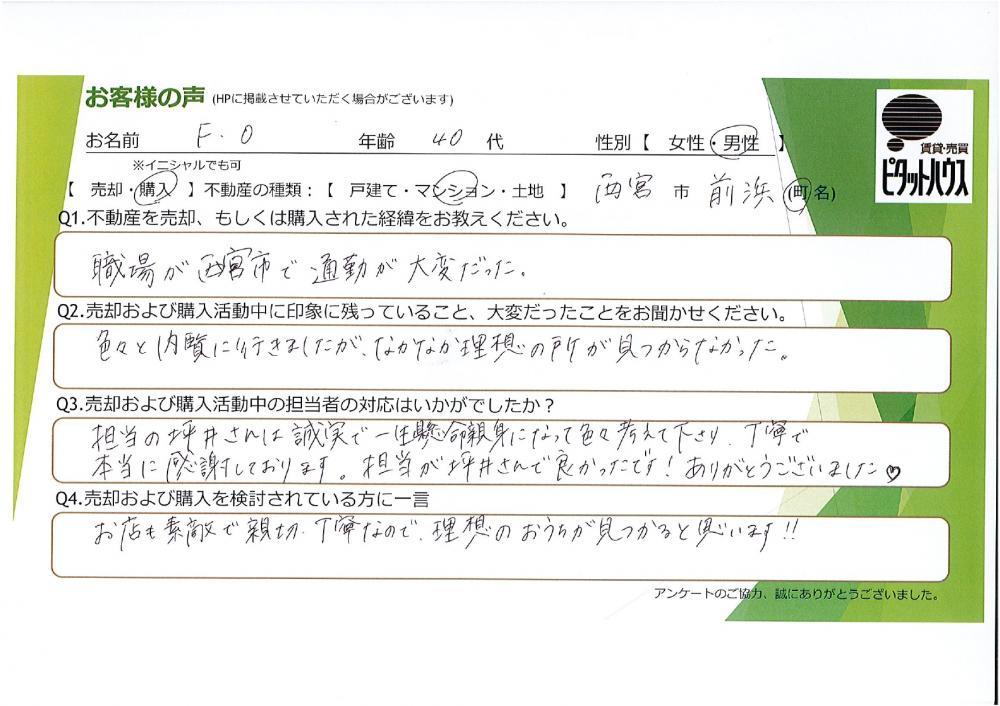 お客様の声 (HPに掲載させていただく場合がございます)
お名前 F.O 年齢 40 代 性別【 女性・男性 】
※イニシャルでも可
賃貸・売買
ピタットハウス
【 売却・購入 】不動産の種類：【 戸建て・マンション・土地 】 西宮 市 前浜 (町名)
Q1.不動産を売却、もしくは購入された経緯をお教えください。
職場が西宮市で通勤が大変だった。
Q2.売却および購入活動中に印象に残っていること、大変だったことをお聞かせください。
色々と内覧に行きましたが、なかなか理想の所が見つからなかった。
Q3.売却および購入活動中の担当者の対応はいかがでしたか？
担当の坪井さんは誠実で一生懸命親身になって色々考えて下さり、丁寧で
本当に感謝しております。担当が坪井さんで良かったです！ありがとうございました♡
Q4.売却および購入を検討されている方に一言
お店も素敵で親切、丁寧なので、理想のおうちが見つかると思います!!
アンケートのご協力、誠にありがとうございました。